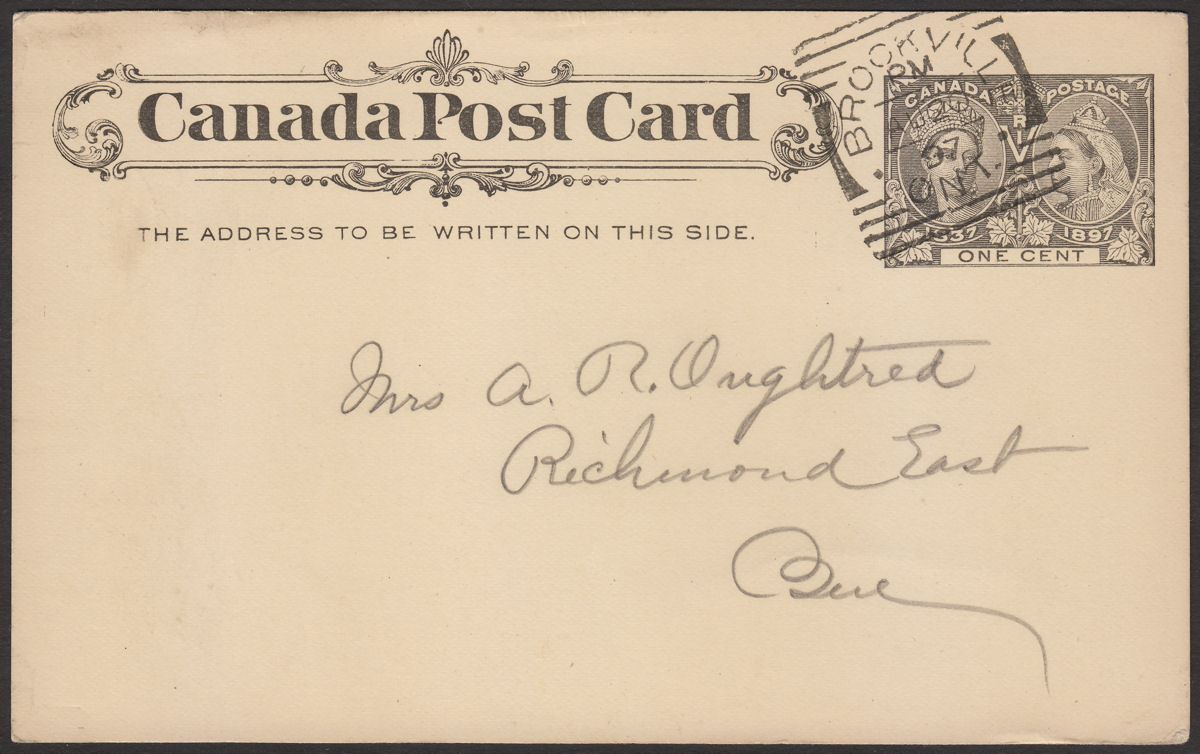 Canada Post Card
THE ADDRESS TO BE WRITTEN ON THIS SIDE.
BROOKVILLE
PM
97
ONT.
CANADA POSTAGE
1837 1897
ONE CENT
Mrs A. R. Oughtred
Richmond East
Que